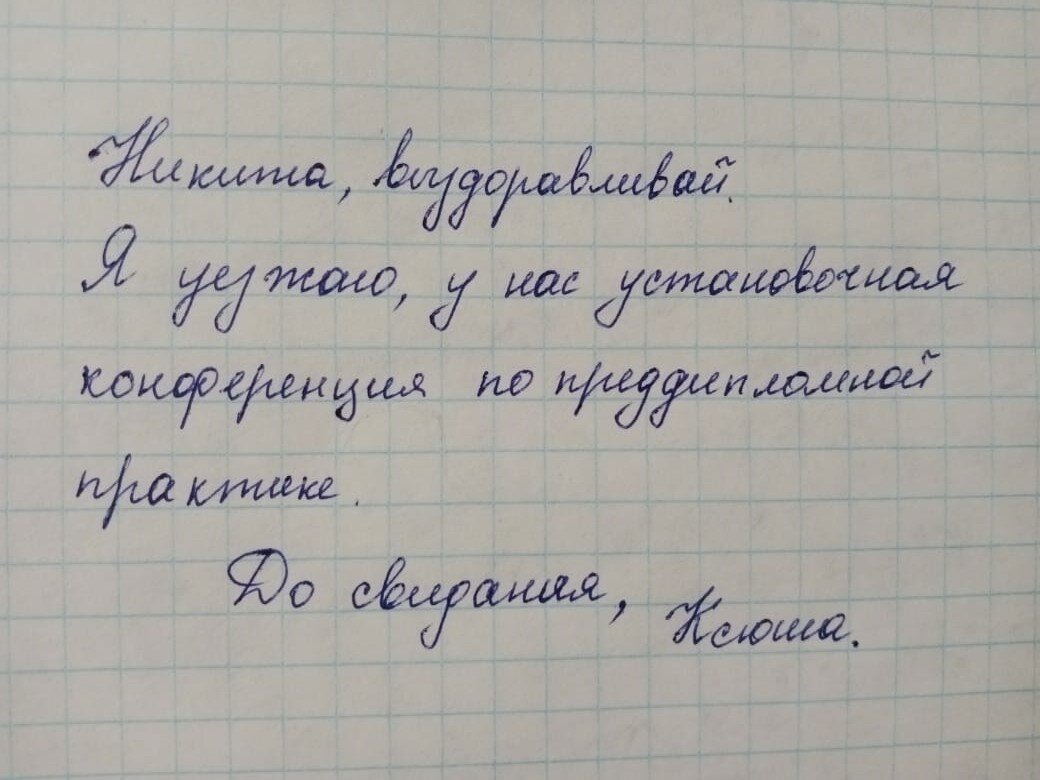 Никита, выздоравливай.
Я уезжаю, у нас установочная
конференция по преддипломной
практике.
До свидания, Ксюша.